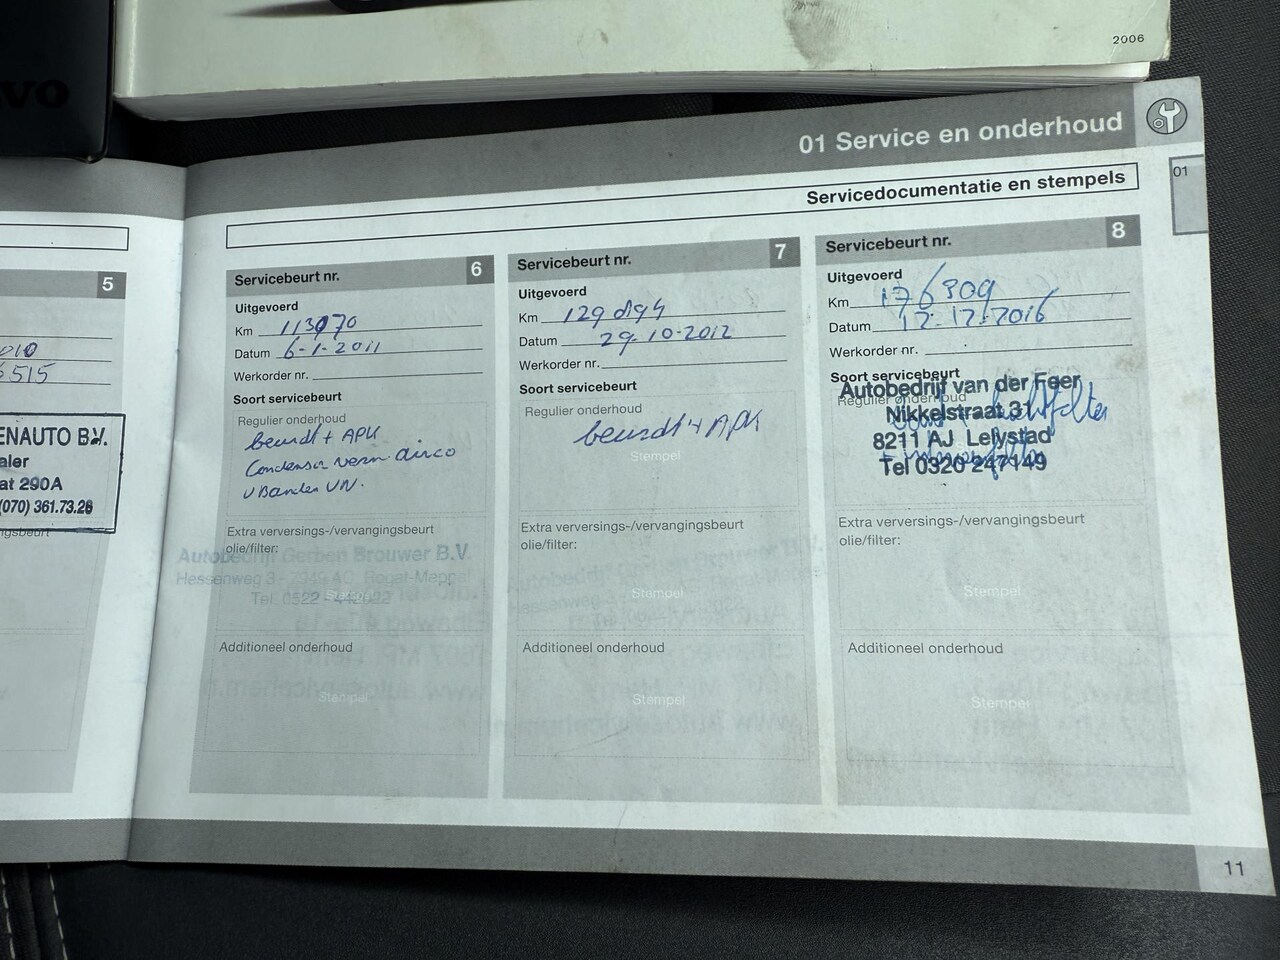 2006
VO
01 Service en onderhoud
01
Servicedocumentatie en stempels
5
010
6515
ENAUTO B.V.
aler
at 290A
(070) 361.73.28
Servicebeurt nr. 6
Uitgevoerd
Km 113070
Datum 6-1-2011
Werkorder nr.
Soort servicebeurt
Regulier onderhoud
beurdt + APK
Condensor vern. airco
Extra verversings-/vervangingsbeurt
olie/filter:
Autobedrijf Gerben Brouwer B.V.
Hessenweg 3 - 7949 AC Rogat-Meppel
Tel. 0522 - 442022
Stempel
Additioneel onderhoud
Stempel
Servicebeurt nr. 7
Uitgevoerd
Km 129 894
Datum 29-10-2012
Werkorder nr.
Soort servicebeurt
Regulier onderhoud
beurdt + APK
Stempel
Extra verversings-/vervangingsbeurt
olie/filter:
Stempel
Additioneel onderhoud
Stempel
Servicebeurt nr. 8
Uitgevoerd
Km 176309
Datum 12-12-2016
Werkorder nr.
Soort servicebeurt
Regulier onderhoud
Autobedrijf van der Feer
Nikkelstraat 31
8211 AJ Lelystad
Tel 0320 247149
Extra verversings-/vervangingsbeurt
olie/filter:
Stempel
Additioneel onderhoud
Stempel
11